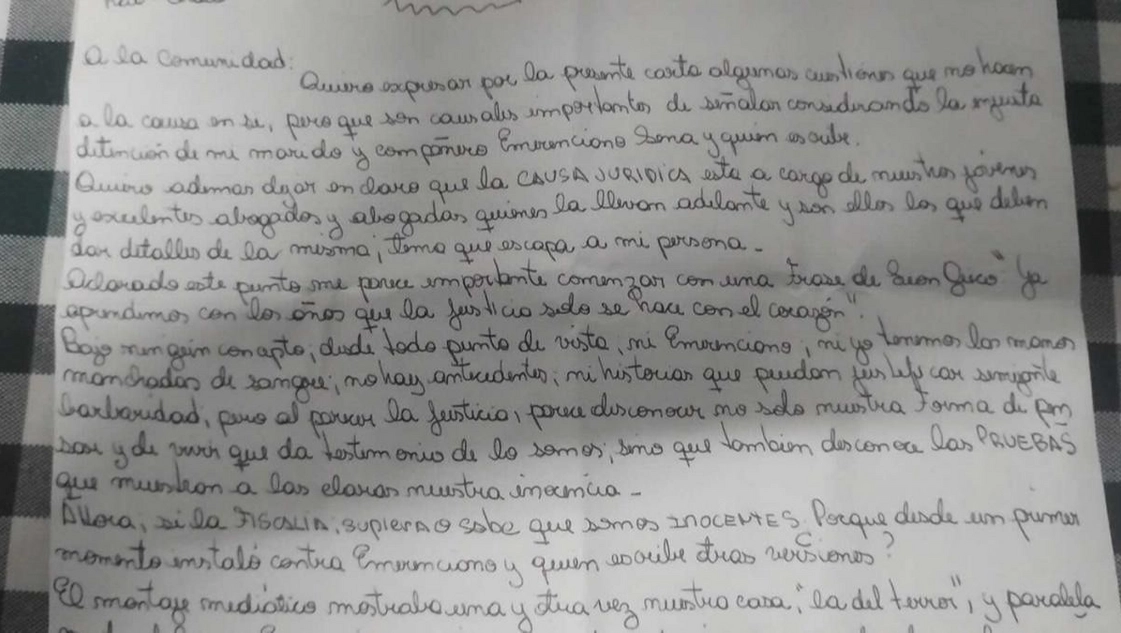 A la Comunidad:
Quiero expresar por la presente carta algunas cuestiones que no hacen
a la causa en si, pero que son causales importantes de señalar considerando la injusta
detención de mi marido y compañero Emerenciano Sena y quien escribe.
Quiero ademas dejar en claro que la CAUSA JURIDICA esta a cargo de nuestros jóvenes
y excelentes abogados y abogadas quienes la llevan adelante y son ellos los que deben
dar detalles de la misma, tema que escapa a mi persona -
Aclarado este punto me parece importante comenzar con una frase de "Ya
aprendimos con los años que la justicia solo se hace con el corazón".
Bajo ningún concepto, desde todo punto de vista, ni Emerenciano, ni yo tenemos las manos
manchadas de sangre, no hay antecedentes, ni historias que puedan justificar semejante
barbaridad, pero al parecer la justicia, parece desconocer no solo nuestra forma de pen
sar y de vivir que da testimonio de lo somos, sino que tambien desconoce las PRUEBAS
que muestran a las claras nuestra inocencia -
Ahora, si la FISCALIA, SUPIERA O sabe que somos INOCENTES. Porque desde un primer
momento instaló contra Emerenciano y quien escribe otras versiones?
El montaje mediático mostraba una y otra vez nuestra casa, "la del terror", y paralela